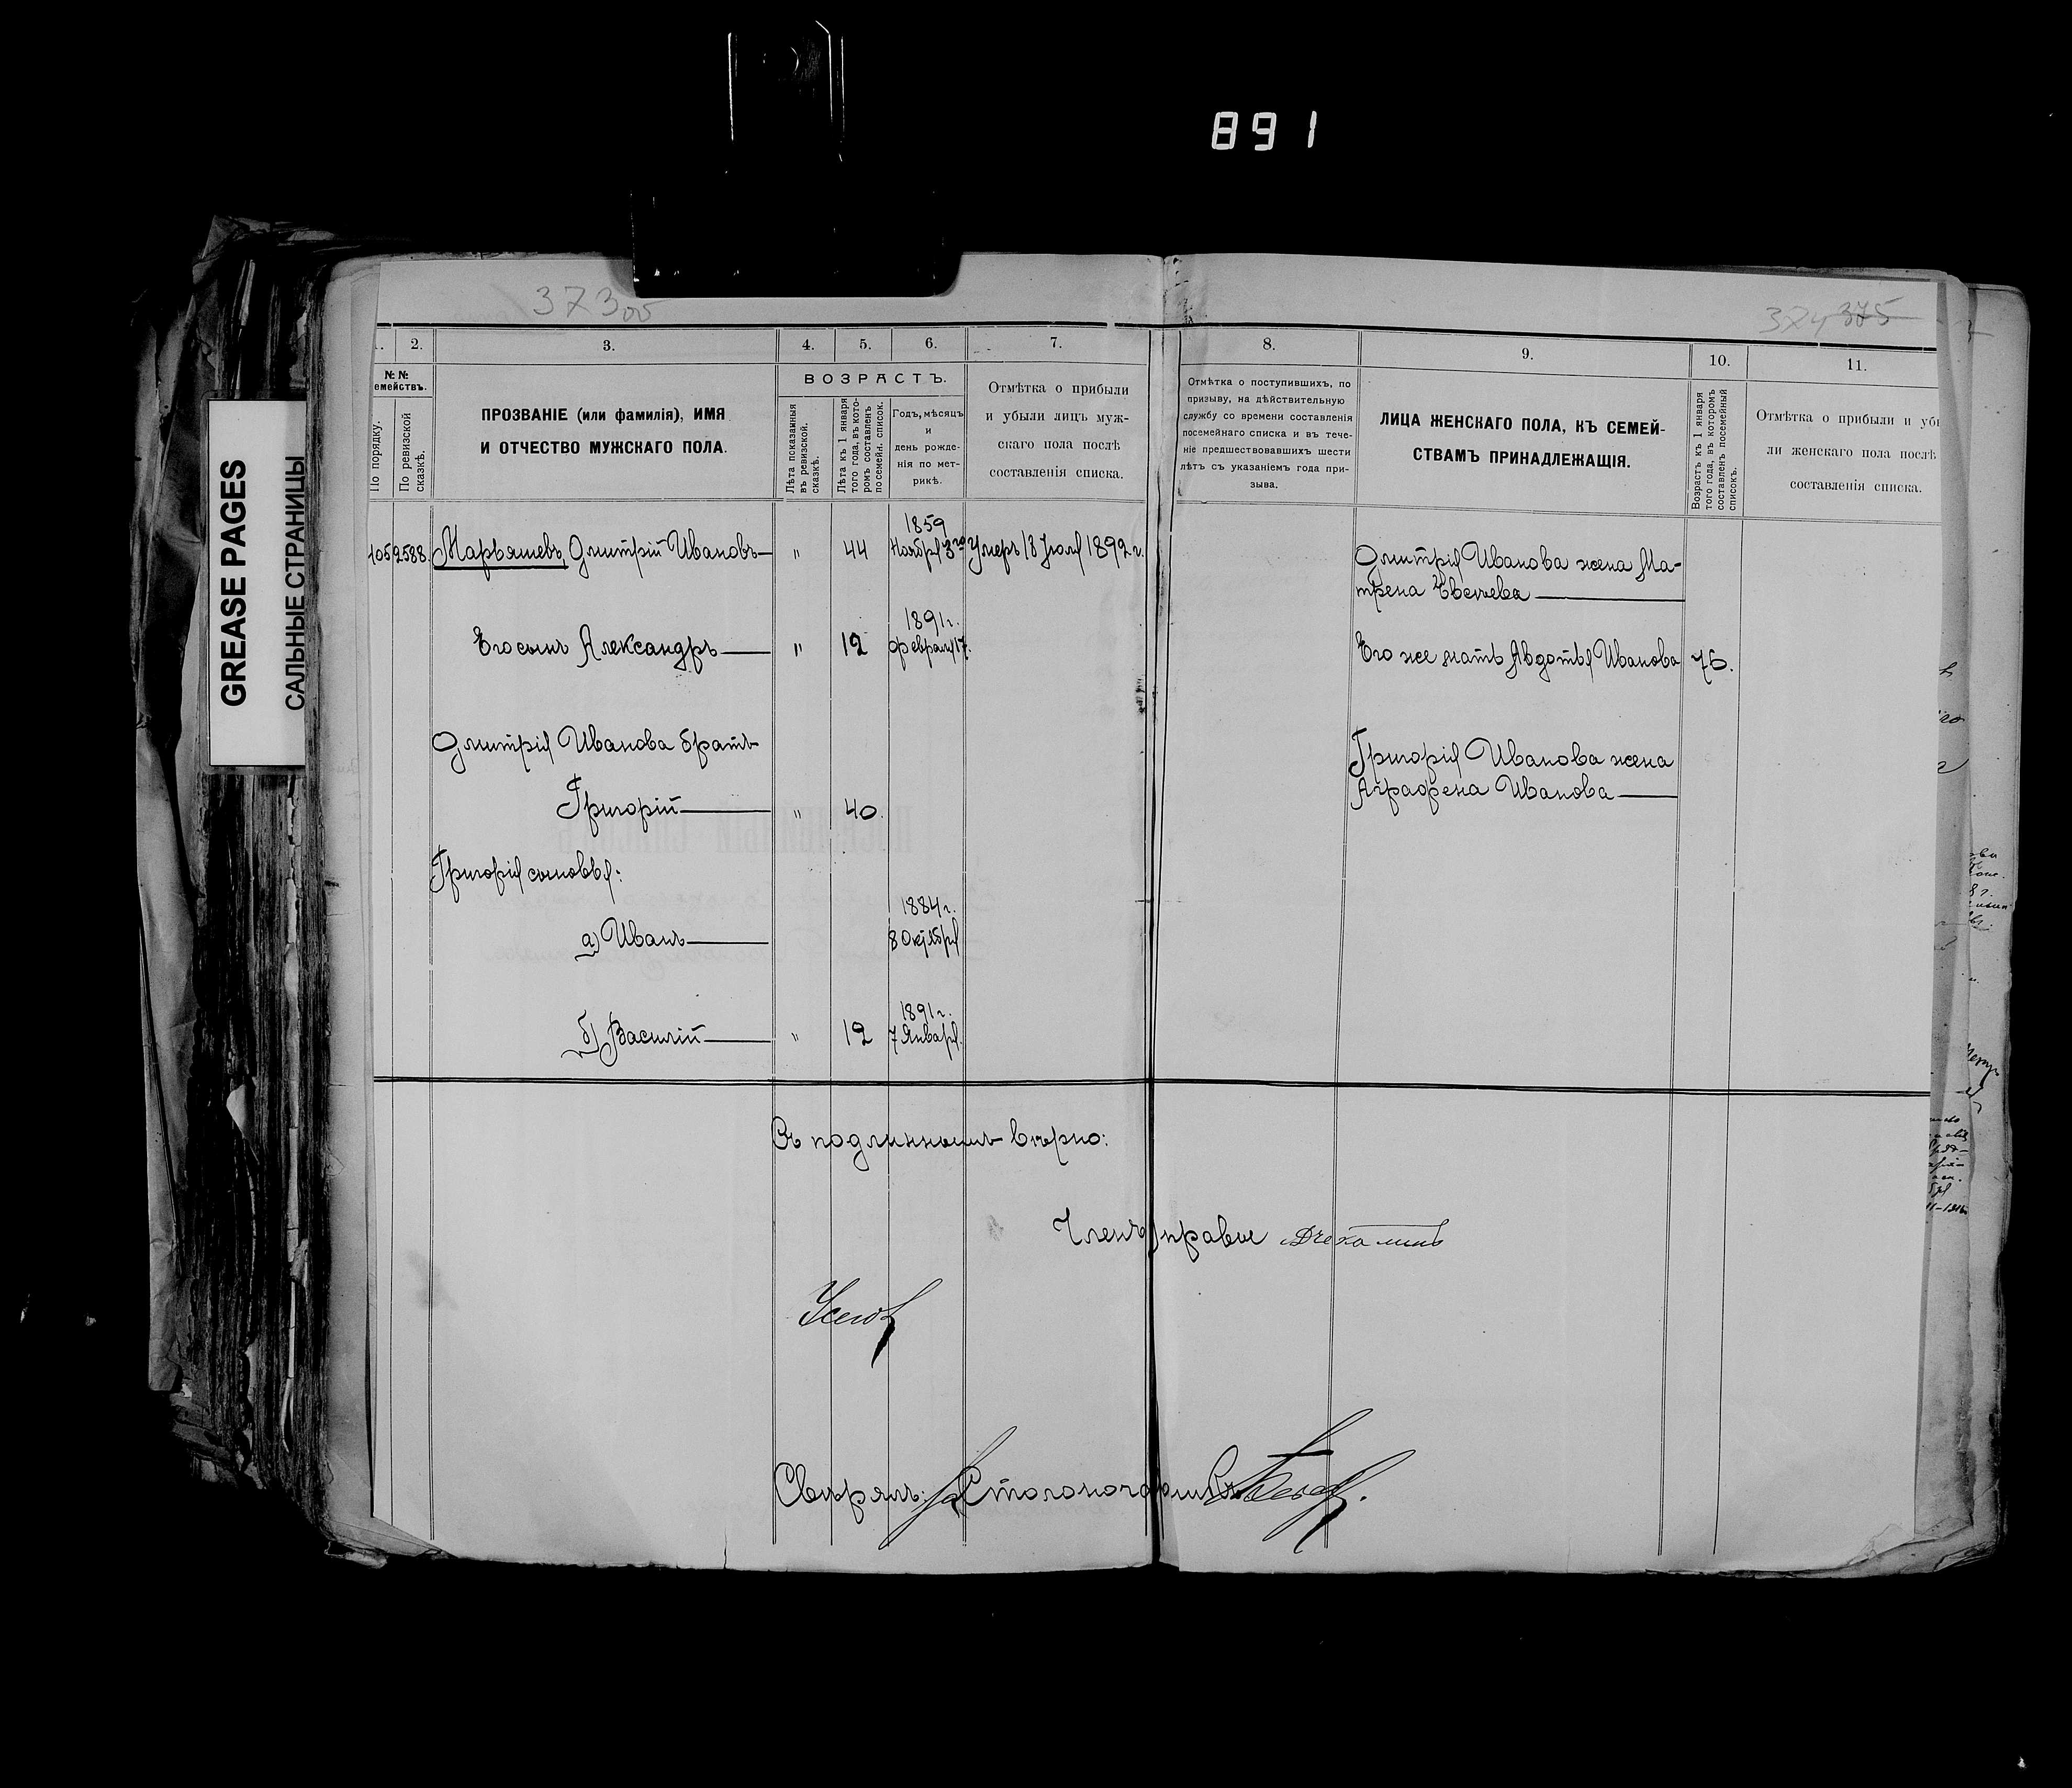 891
GREASE PAGES
САЛЬНЫЕ СТРАНИЦЫ
373об
374 375
1. 2. 3. 4. 5. 6. 7. 8. 9. 10. 11.
№ №
семействъ.
По порядку.
По ревизской
сказкѣ.
ПРОЗВАНІЕ (или фамилія), ИМЯ
И ОТЧЕСТВО МУЖСКАГО ПОЛА.
ВОЗРАСТЪ.
Лѣта показанныя
въ ревизской.
сказкѣ.
Лѣта къ 1 января
того года, въ кото-
ромъ составленъ
посемейн. список.
Годъ, мѣсяцъ
и
день рожде-
нія по мет-
рикѣ.
Отмѣтка о прибыли
и убыли лицъ муж-
скаго пола послѣ
составленія списка.
Отмѣтка о поступившихъ, по
призыву, на дѣйствительную
службу со времени составленія
посемейнаго списка и въ тече-
ніе предшествовавшихъ шести
лѣтъ съ указаніемъ года при-
зыва.
ЛИЦА ЖЕНСКАГО ПОЛА, КЪ СЕМЕЙ-
СТВАМЪ ПРИНАДЛЕЖАЩІЯ.
Возрастъ къ 1 января
того года, въ которомъ
составленъ посемейный
списокъ.
Отмѣтка о прибыли и убы
ли женскаго пола послѣ
составленія списка.
1859
105 2588. Марьяшевъ Дмитрій Ивановъ " 44 Ноября 3го Умеръ 18 Іюля 1892 г.
Дмитрія Иванова жена Ма-
трена Евсеева
1891 г.
Его сынъ Александръ " 12 Февраля 17.
Его же мать Авдотья Иванова 76.
Дмитрія Иванова братъ
Григорій " 40.
Григорія Иванова жена
Аграфена Иванова
Григорія сыновья:
1884 г.
а) Иванъ 8 Октября
1891 г.
б) Василій " 12 7 Января.
Съ подлиннымъ вѣрно:
Членъ Управы
Свѣрялъ: Столоначальникъ